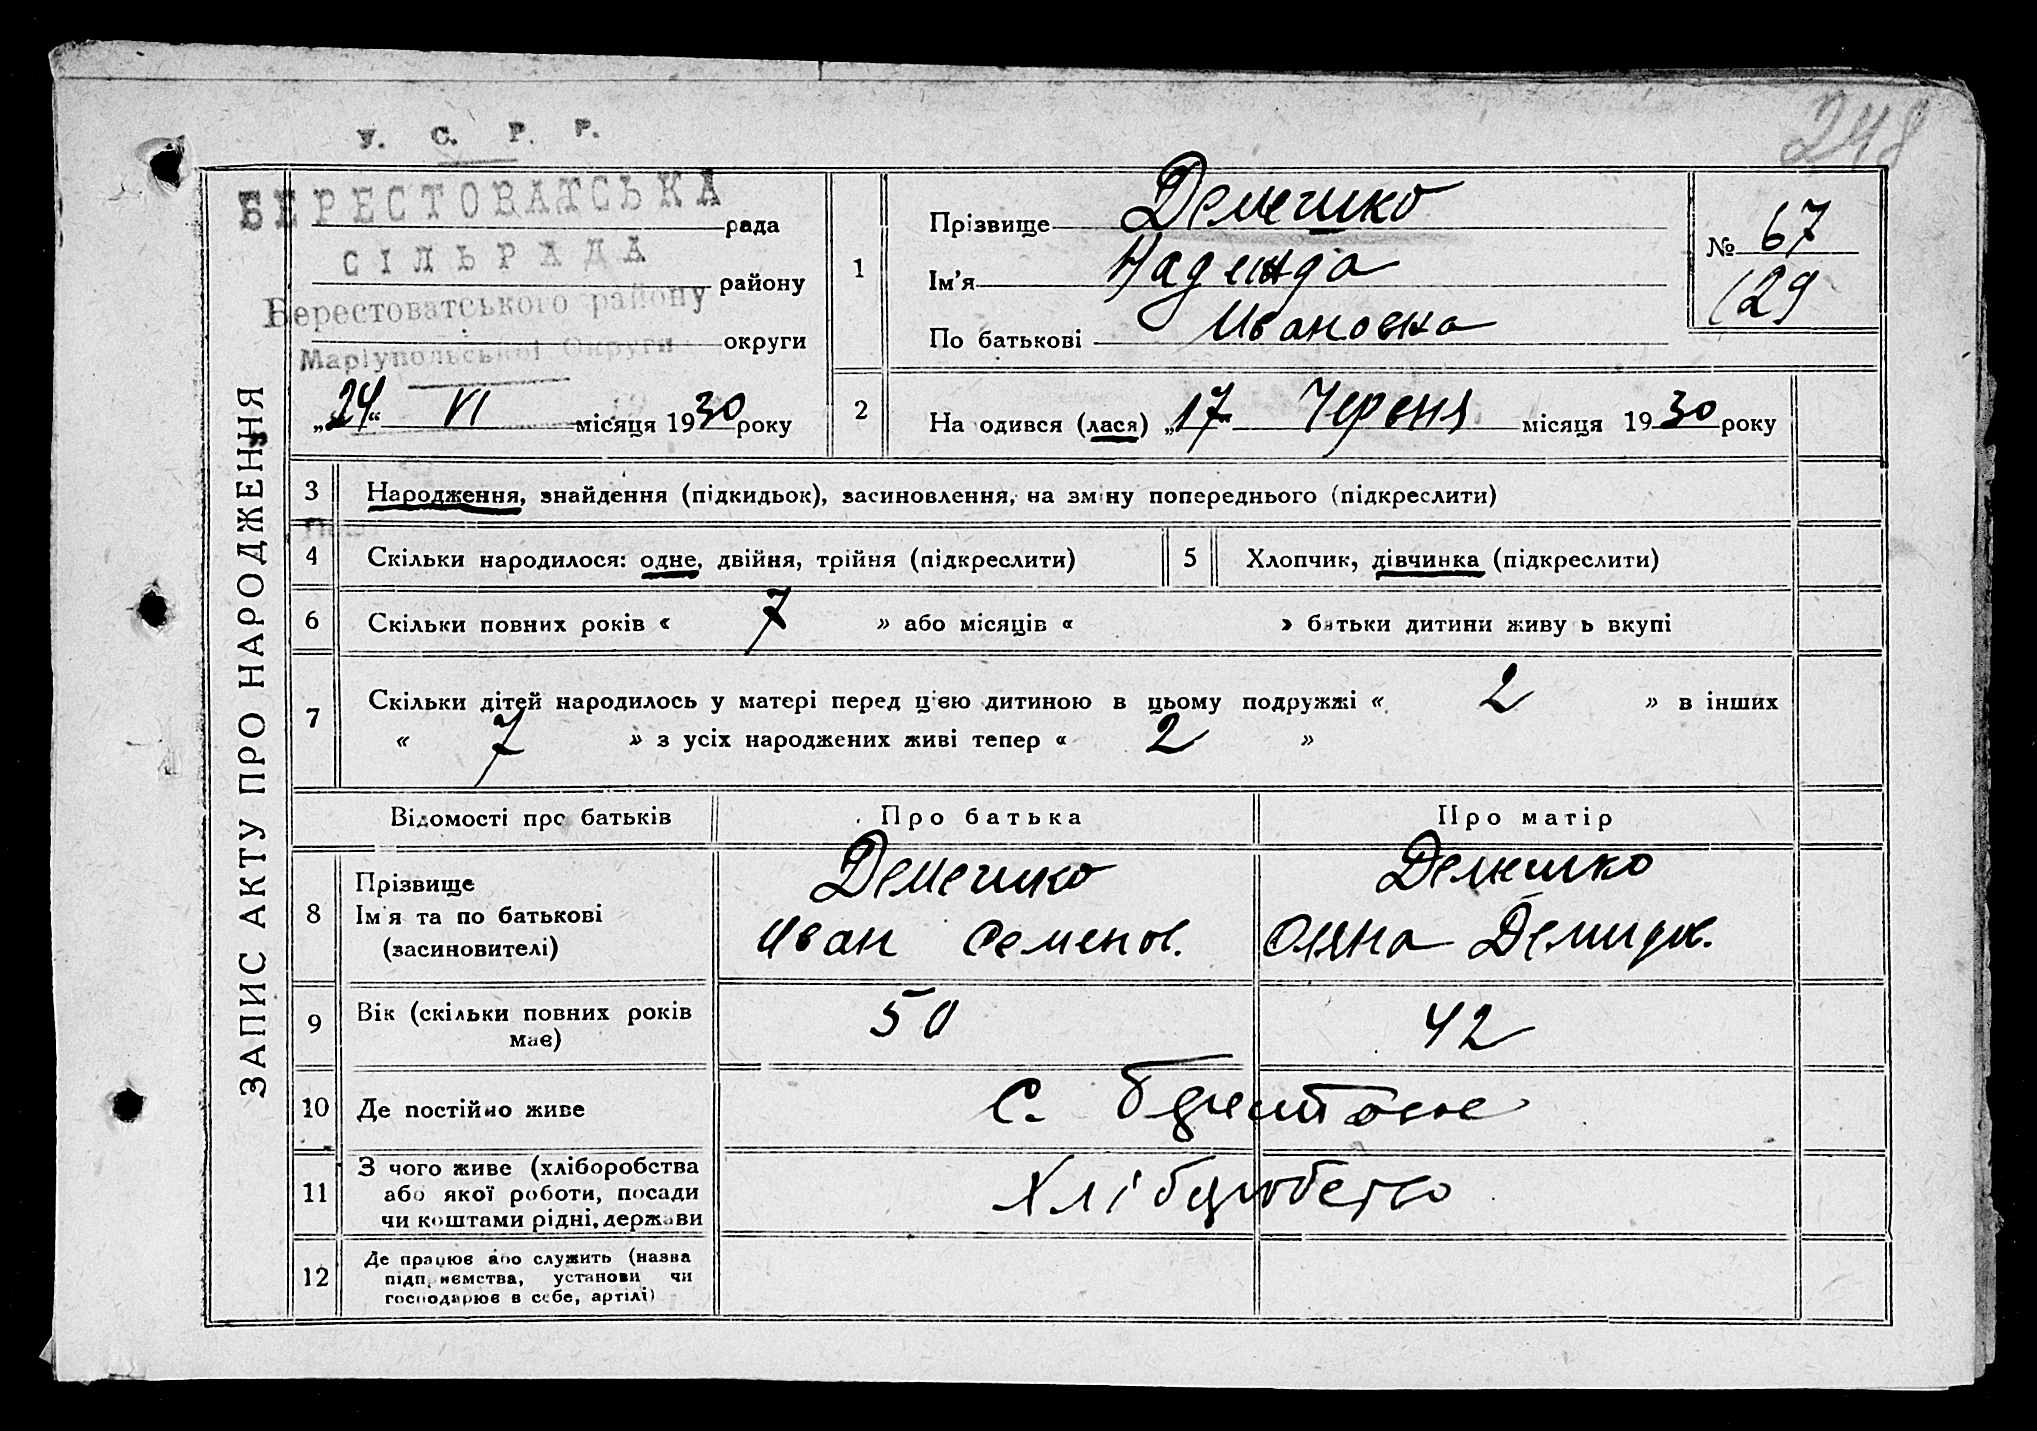 248
У. С. Р. Р.
БЕРЕСТОВАТСЬКА рада
СІЛЬРАДА району
Берестоватського району
Маріупольської Округи округи
„24“ VI місяця 1930 року
1
Прізвище Демешко
Ім'я Надежда
По батькові Ивановна
№ 67
129
2
На одився (лася) „17“ Червня місяця 1930 року
ЗАПИС АКТУ ПРО НАРОДЖЕННЯ
3 Народження, знайдення (підкидьок), засиновлення, на зміну попереднього (підкреслити)
4 Скільки народилося: одне, двійня, трійня (підкреслити)
5 Хлопчик, дівчинка (підкреслити)
6 Скільки повних років « 7 » або місяців « » батьки дитини живу ь вкупі
7 Скільки дітей народилось у матері перед цією дитиною в цьому подружжі « 2 » в інших
« 7 » з усіх народжених живі тепер « 2 »
Відомості про батьків Про батька Про матір
8 Прізвище
Ім'я та по батькові
(засиновителі)
Демешко
Иван Семенов.
Демешко
Демидов.
9 Вік (скільки повних років
має)
50
42
10 Де постійно живе
с.
11 З чого живе (хліборобства
або якої роботи, посади
чи коштами рідні, держави
Хліборобство
12 Де працює або служить (назва
підприємства, установи чи
господарює в себе, артілі)